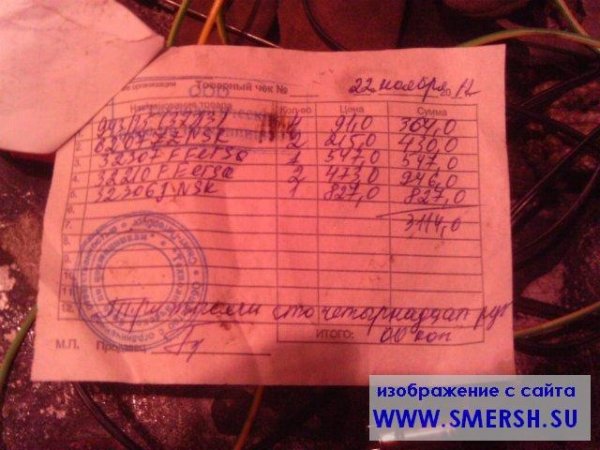 Товарный чек №
22 ноября 12
Наименование товара Кол-во Цена Сумма
4 91,0 364,0
NSK 2 215,0 430,0
32307 F Fersa 1 547,0 547,0
32210 F Fersa 2 473,0 946,0
32306J NSK 1 827,0 827,0
3114,0
Три тысячи сто четырнадцат руб
ИТОГО: 00 коп
М.П. Продавец
изображение с сайта
WWW.SMERSH.SU